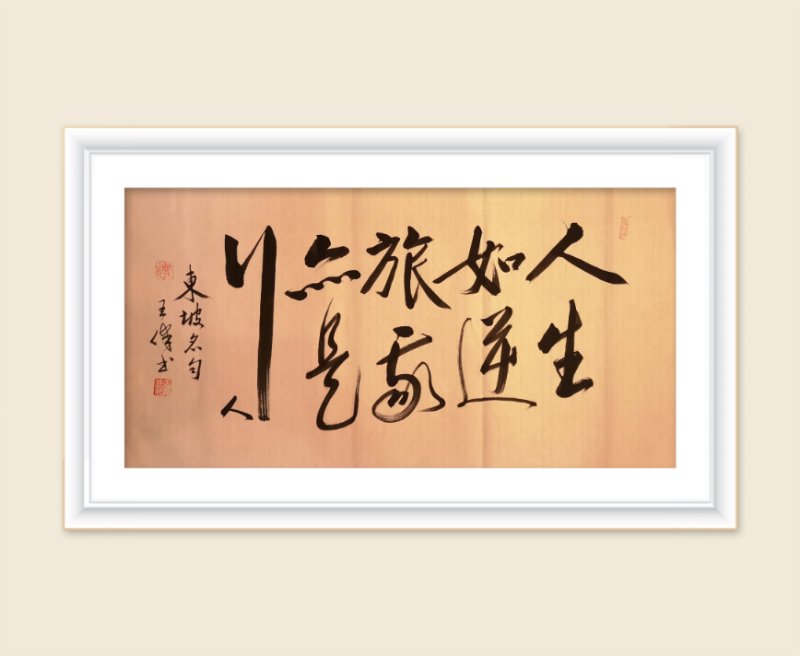 人生
如逆
旅我
亦是
行人
東坡名句
王书